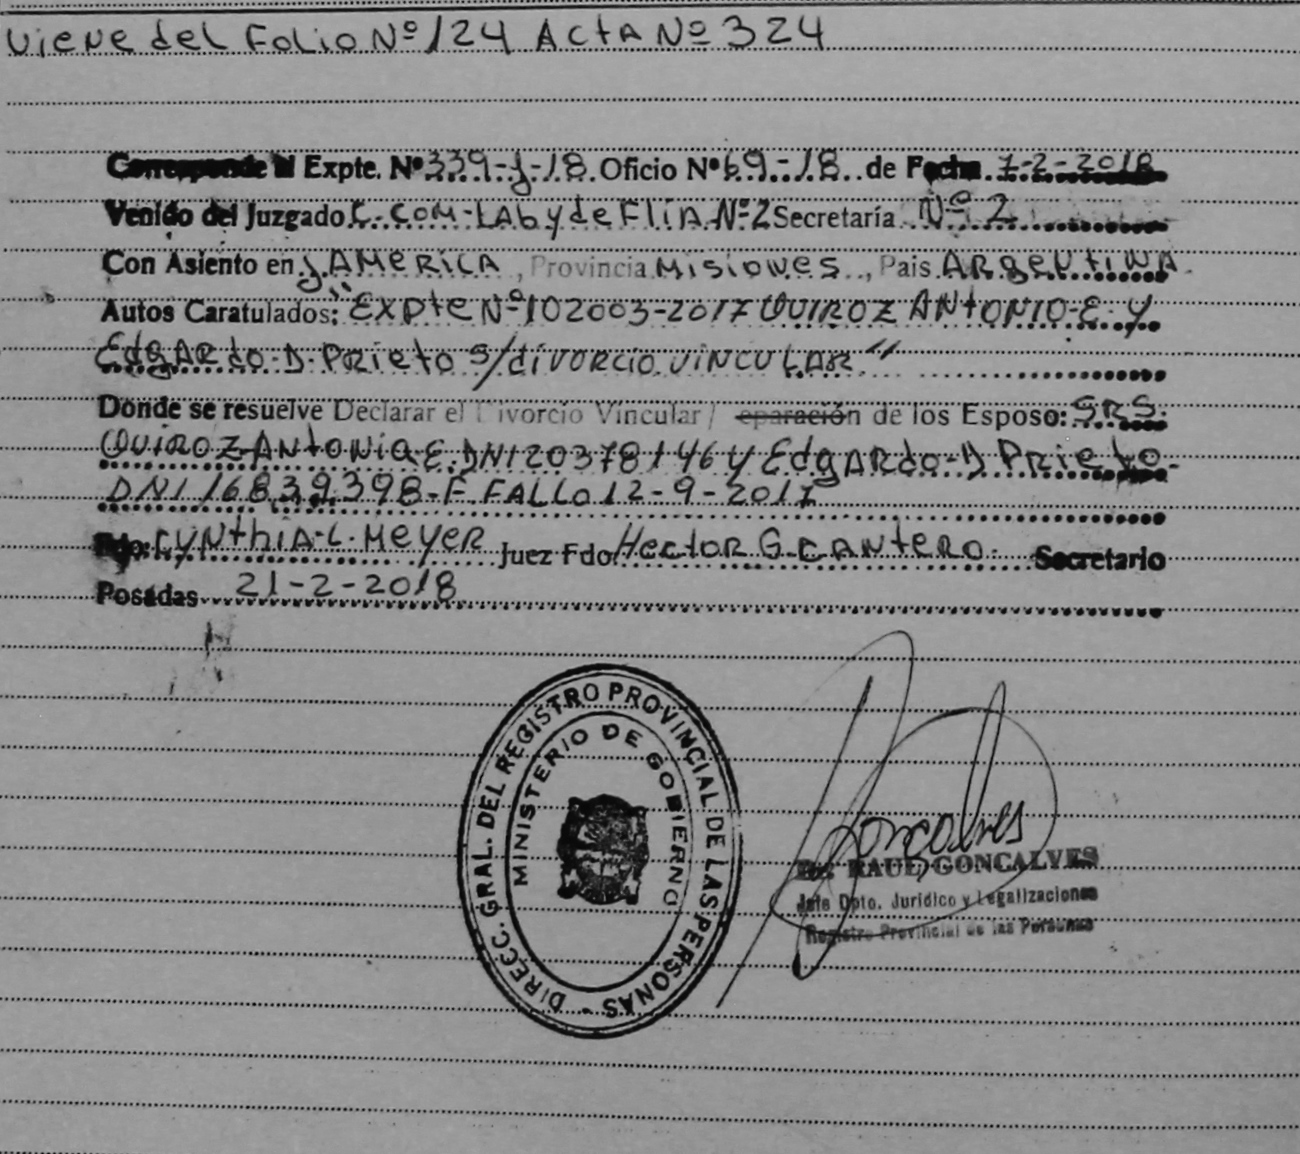 Viene del Folio Nº 124 Acta Nº 324
Corresponde al Expte. Nº 339-J-18. Oficio Nº 69-18 de Fecha 7-2-2018
Venido del Juzgado C. COM-LAB y de FLIA Nº2 Secretaría Nº 2
Con Asiento en J. AMERICA, Provincia MISIONES, Pais ARGENTINA
Autos Caratulados: "EXPTE Nº 102003-2017 QUIROZ ANTONIO-E. Y
EDGARDO-D-PRIETO S/DIVORCIO VINCULAR"
Donde se resuelve Declarar el Divorcio Vincular / eparación de los Esposo: SRS.
QUIROZ ANTONIA E. DNI 20378146 Y EDGARDO-D PRIETO-
DNI 16839398-F. FALLO 12-9-2017
Fdo: CYNTHIA-L-MEYER Juez Fdo: HECTOR G-CANTERO. Secretario
Posadas 21-2-2018
DIRECC. GRAL. DEL REGISTRO PROVINCIAL DE LAS PERSONAS -
MINISTERIO DE GOBIERNO
Goncalves
Dr. RAUL GONCALVES
Jefe Dpto. Jurídico y Legalizaciones
Registro Provincial de las Personas